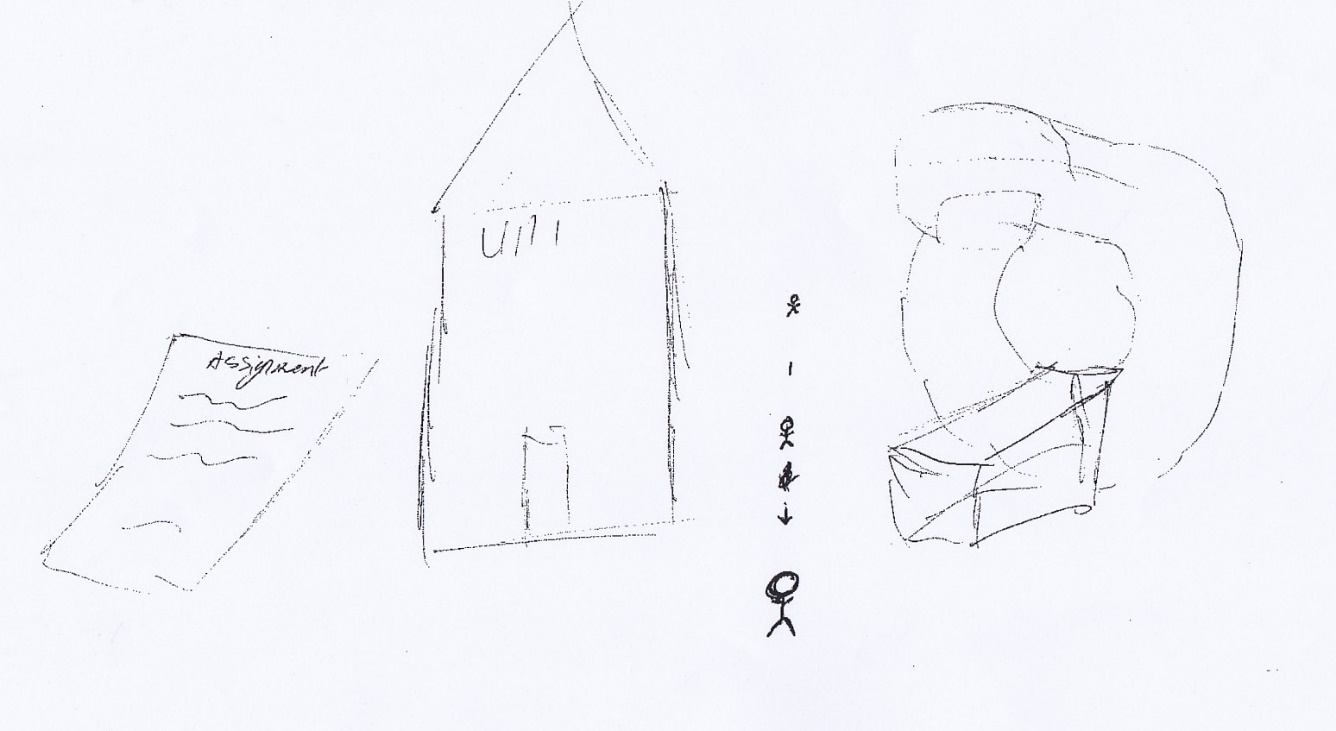 Assignment
UNI